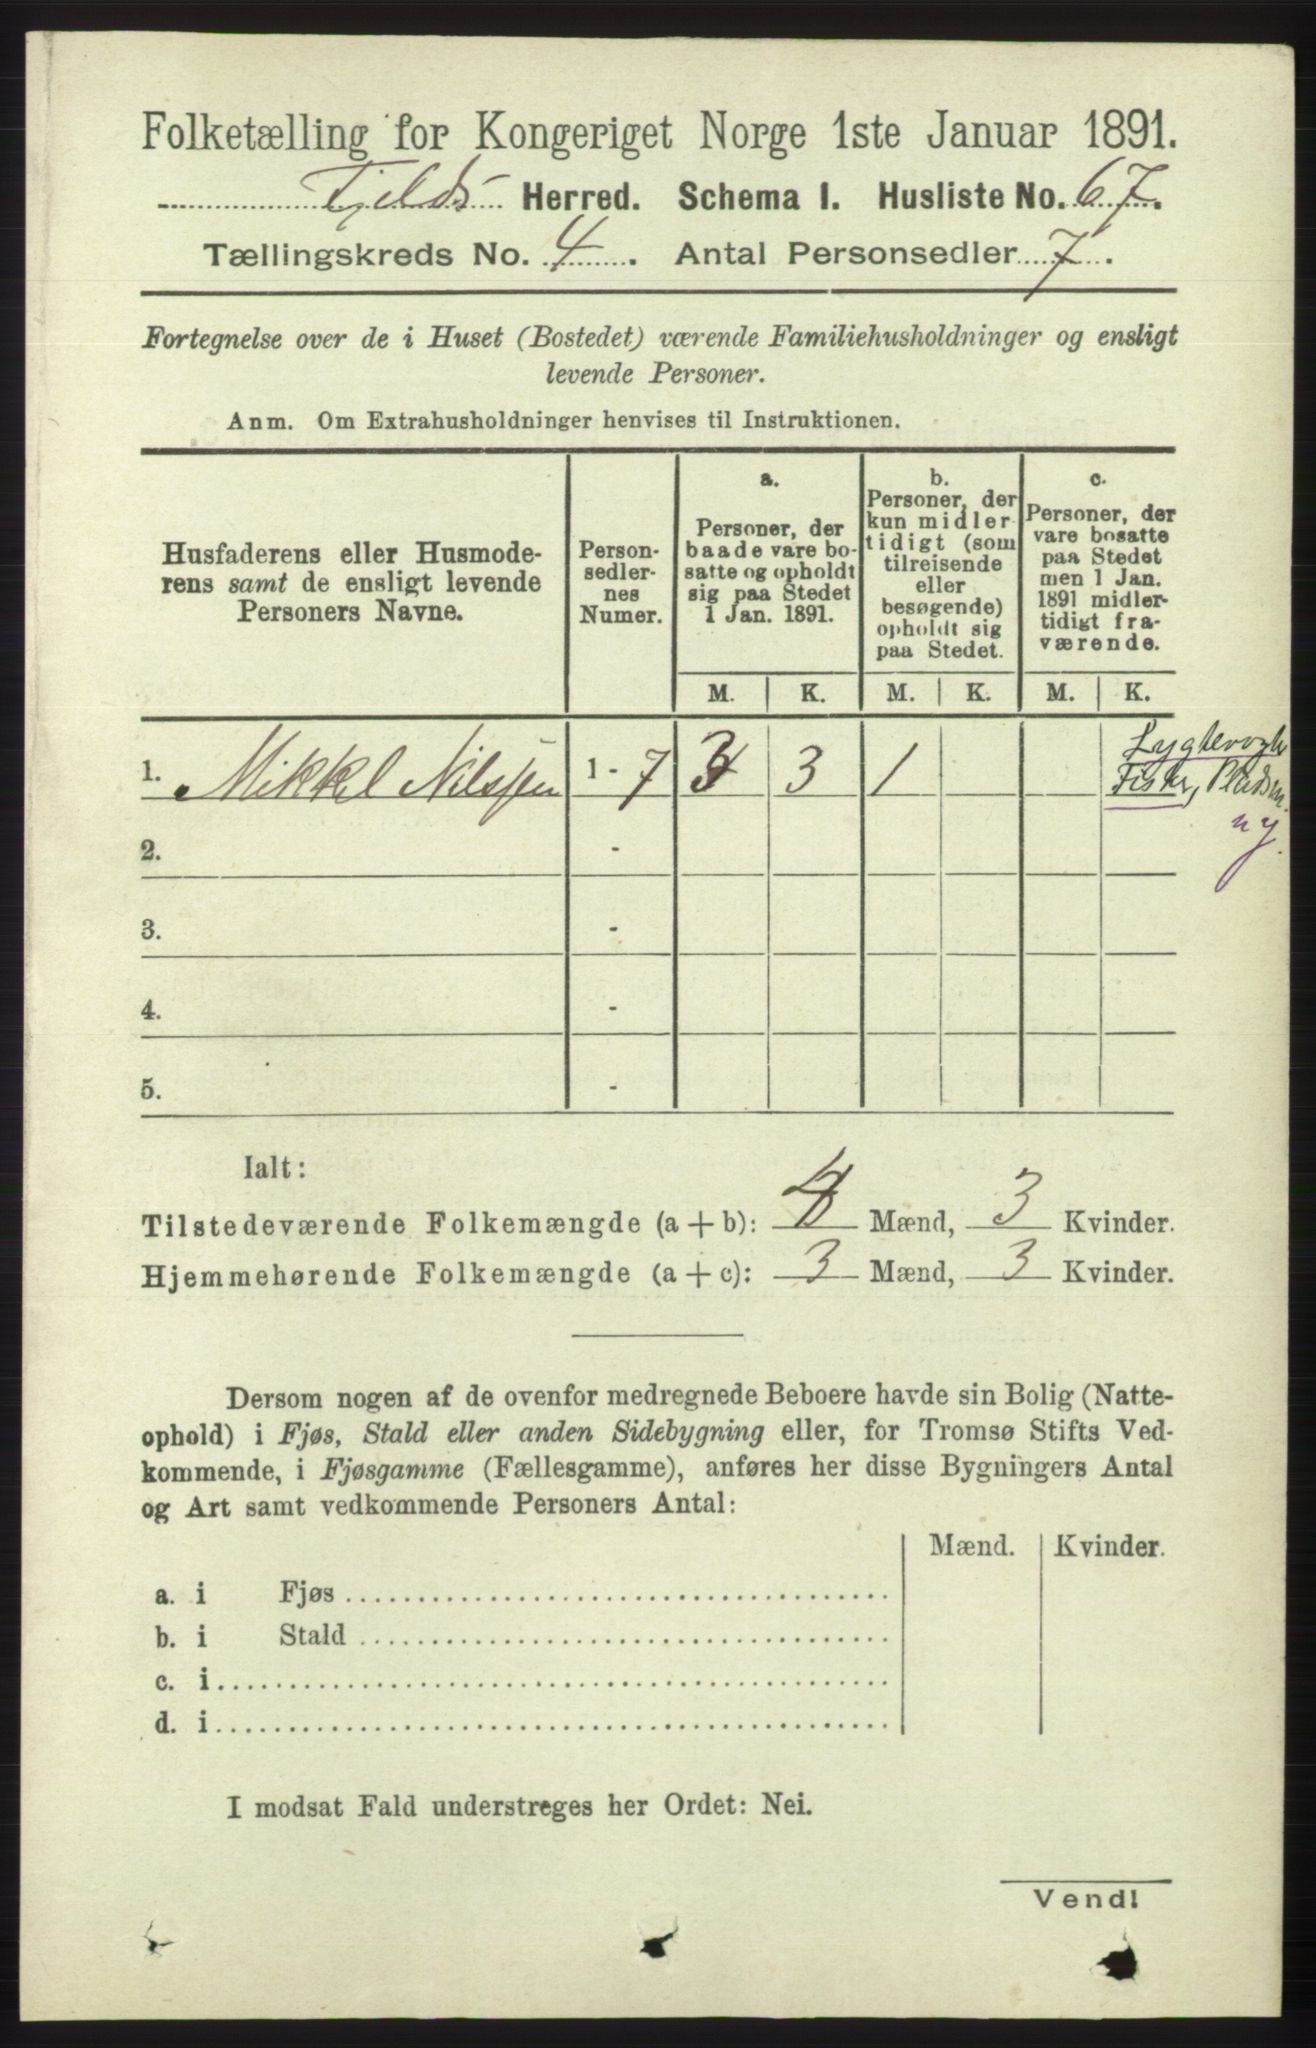 Folketælling for Kongeriget Norge 1ste Januar 1891.
Fjelds Herred. Schema I. Husliste No. 67.
Tællingskreds No. 4. Antal Personsedler 7.
Fortegnelse over de i Huset (Bostedet) værende Familiehusholdninger og ensligt
levende Personer.
Anm. Om Extrahusholdninger henvises til Instruktionen.
Husfaderens eller Husmode-
rens samt de ensligt levende
Personers Navne.
Person-
sedler-
nes
Numer.
a.
Personer, der
baade vare bo-
satte og opholdt
sig paa Stedet
1 Jan. 1891.
b.
Personer, der
kun midler-
tidigt (som
tilreisende
eller
besøgende)
opholdt sig
paa Stedet.
c.
Personer, der
vare bosatte
paa Stedet
men 1 Jan.
1891 midler-
tidigt fra-
værende.
M. K. M. K. M. K.
1. Mikkel Nilssen 1 - 7 3 3 1
Fisker, Pladsm.
ny.
2. -
3. -
4. -
5. -
Ialt:
Tilstedeværende Folkemængde (a + b): 4 Mænd, 3 Kvinder.
Hjemmehørende Folkemængde (a + c): 3 Mænd, 3 Kvinder.
Dersom nogen af de ovenfor medregnede Beboere havde sin Bolig (Natte-
ophold) i Fjøs, Stald eller anden Sidebygning eller, for Tromsø Stifts Ved-
kommende, i Fjøsgamme (Fællesgamme), anføres her disse Bygningers Antal
og Art samt vedkommende Personers Antal:
Mænd. Kvinder.
a. i Fjøs
b. i Stald
c. i
d. i
I modsat Fald understreges her Ordet: Nei.
Vend!